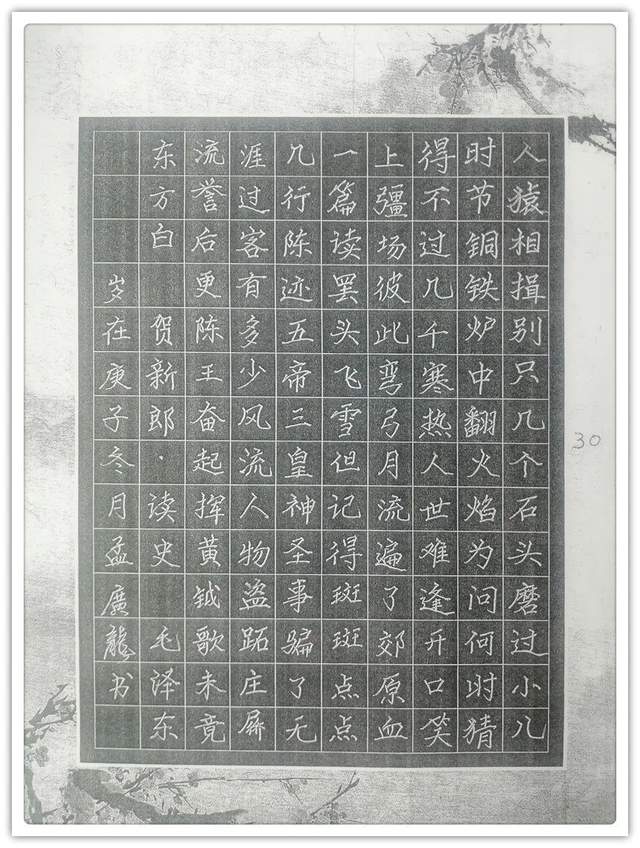 人猿相揖别只几个石头磨过小儿
时节铜铁炉中翻火焰为问何时猜
得不过几千寒热人世难逢开口笑
上疆场彼此弯弓月流遍了郊原血
一篇读罢头飞雪但记得斑斑点点
几行陈迹五帝三皇神圣事骗了无
涯过客有多少风流人物盗跖庄屩
流誉后更陈王奋起挥黄钺歌未竟
东方白 贺新郎·读史 毛泽东
岁在庚子冬月孟廣龍书
30